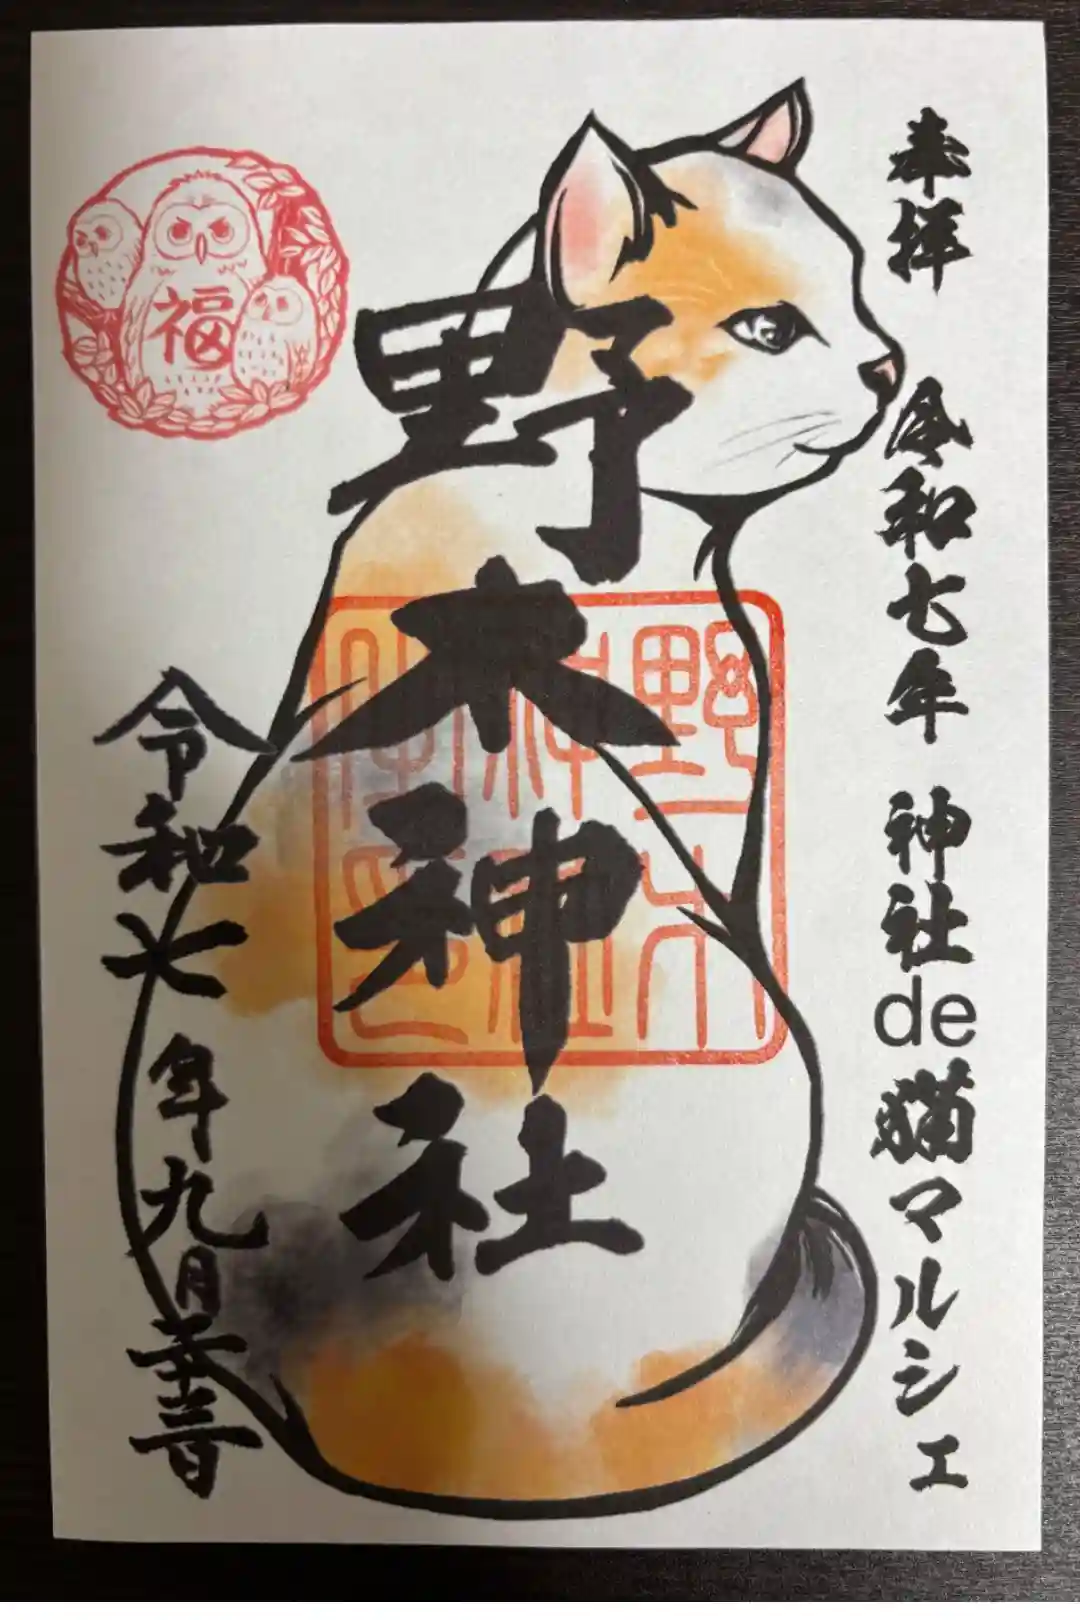 奉拝 令和七年 神社de猫マルシェ
野木神社
野木
神社
令和七年九月二十三日
福